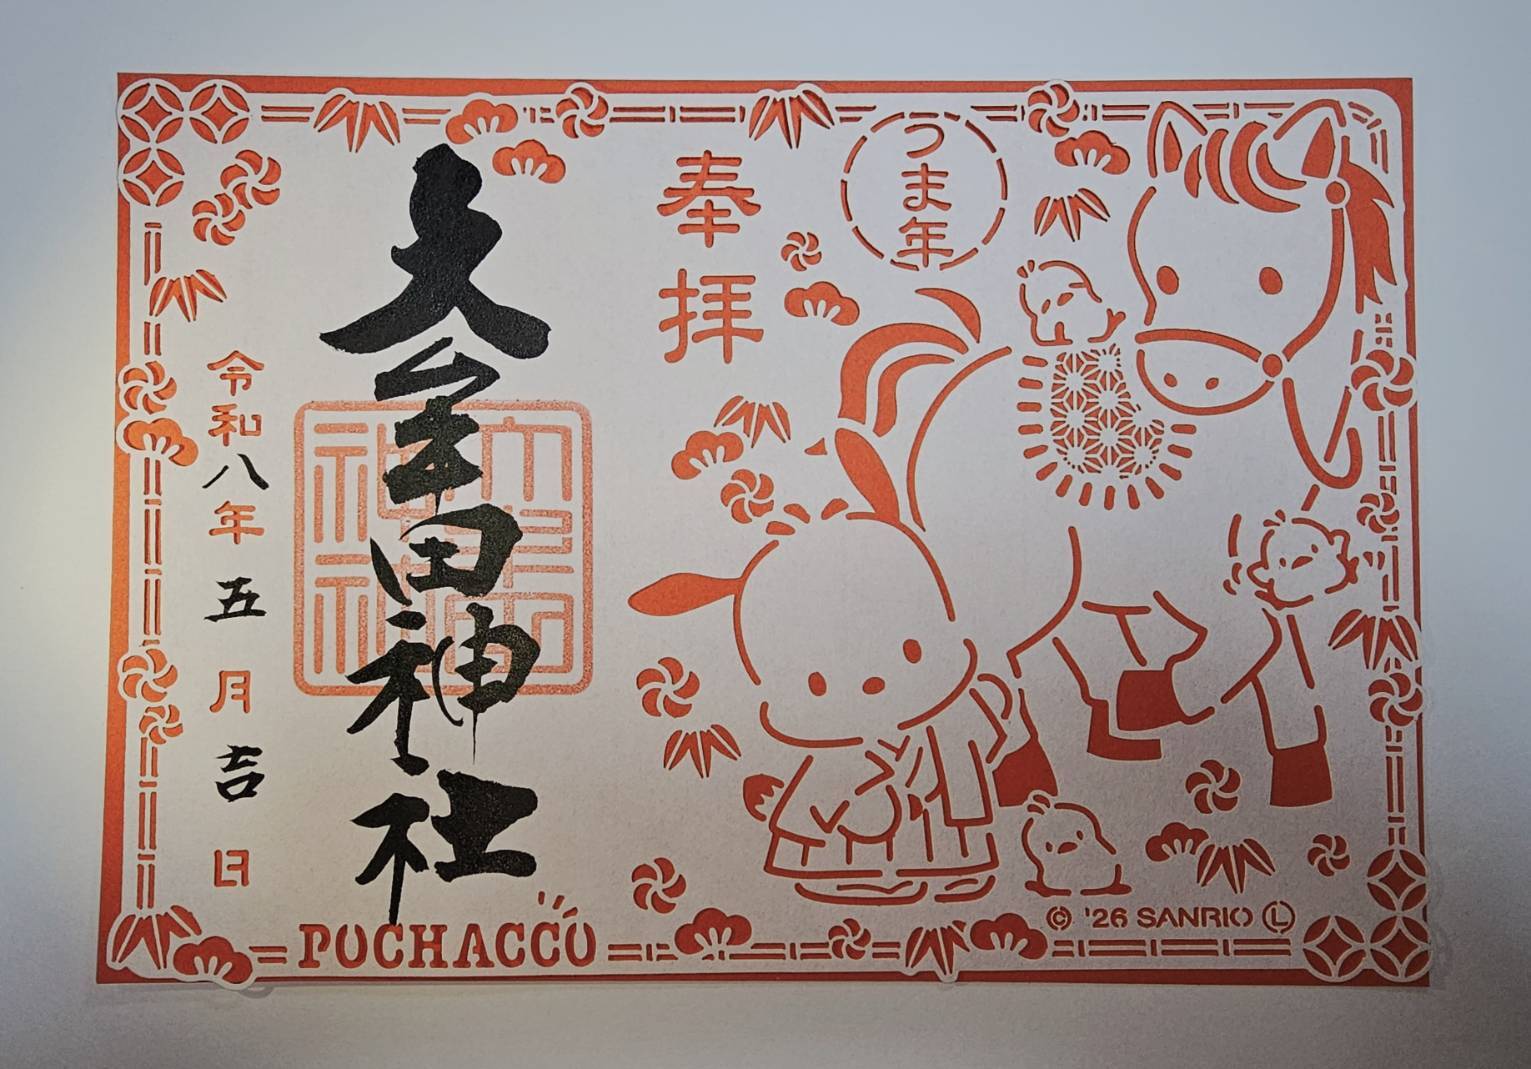 うま年
奉拝
大牟田神社
令和八年五月吉日
POCHACCO
© '26 SANRIO Ⓛ